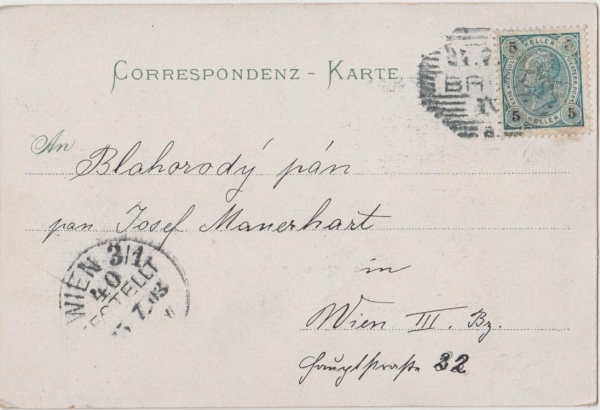 CORRESPONDENZ - KARTE
5 HELLER 5
5 HELLER 5
BR
An Blahorodý pán
pan Josef Manerhart
in
Wien III. Bz.
Hauptstraße 32
WIEN 3/1
40
BESTELLT